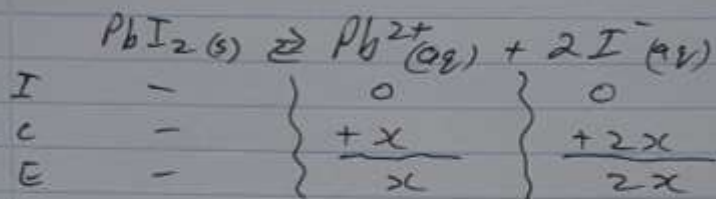 PbI₂(s) ⇌ Pb²⁺(aq) + 2I⁻(aq)
I - 0 0
C - +x +2x
E - x 2x